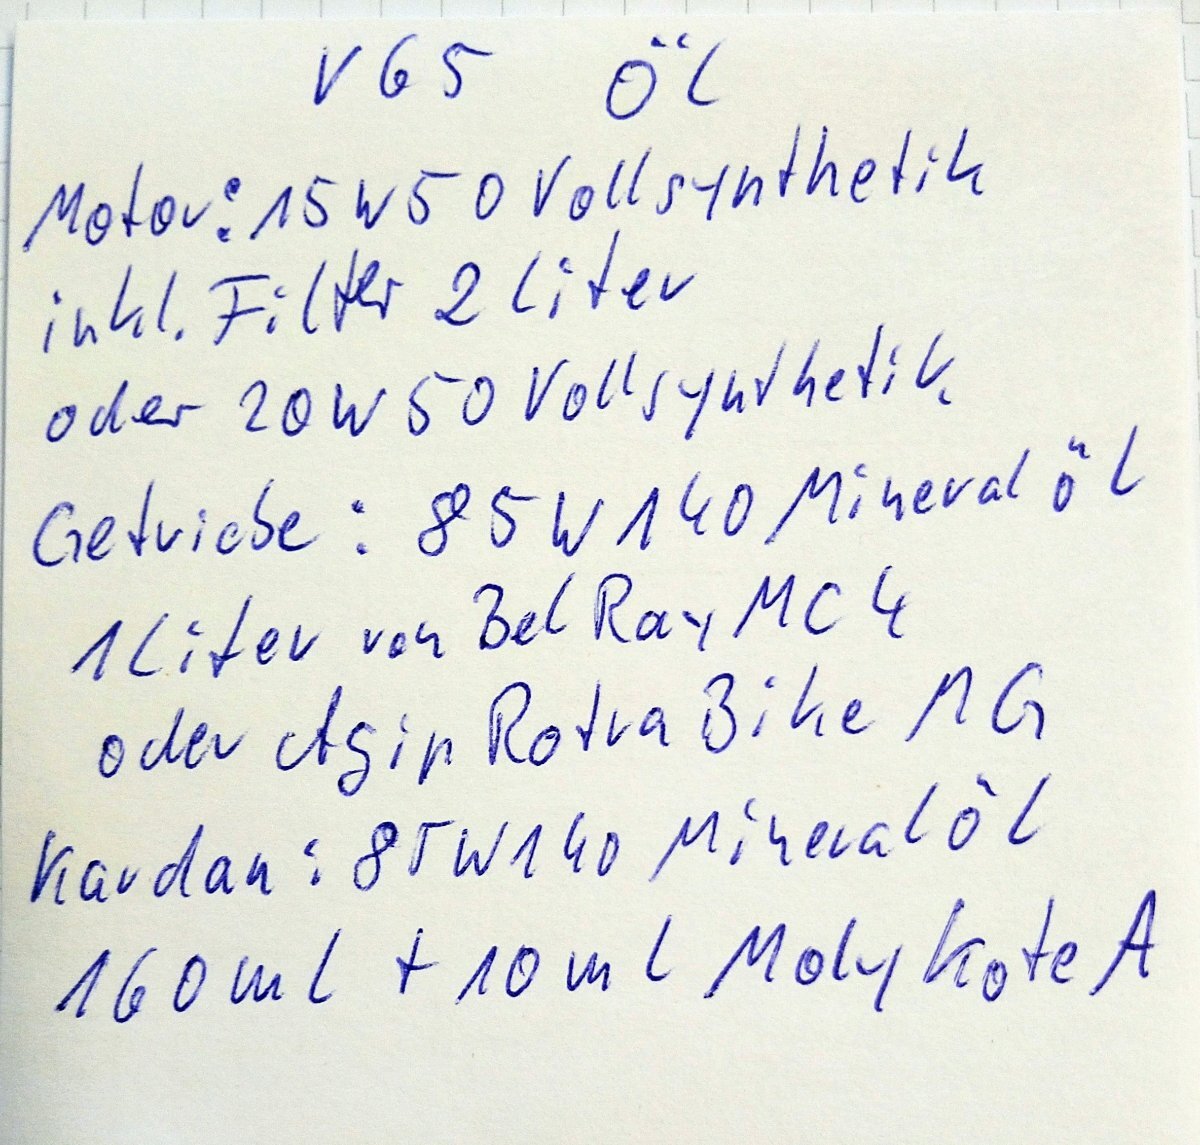 V65 Öl
Motor: 15W50 Vollsynthetik
inkl. Filter 2 Liter
oder 20W50 Vollsynthetik
Getriebe: 85W140 Mineralöl
1 Liter von Bel Ray MC4
oder Agip Rotra Bike MG
Kardan: 85W140 Mineralöl
160ml + 10ml Molykote A